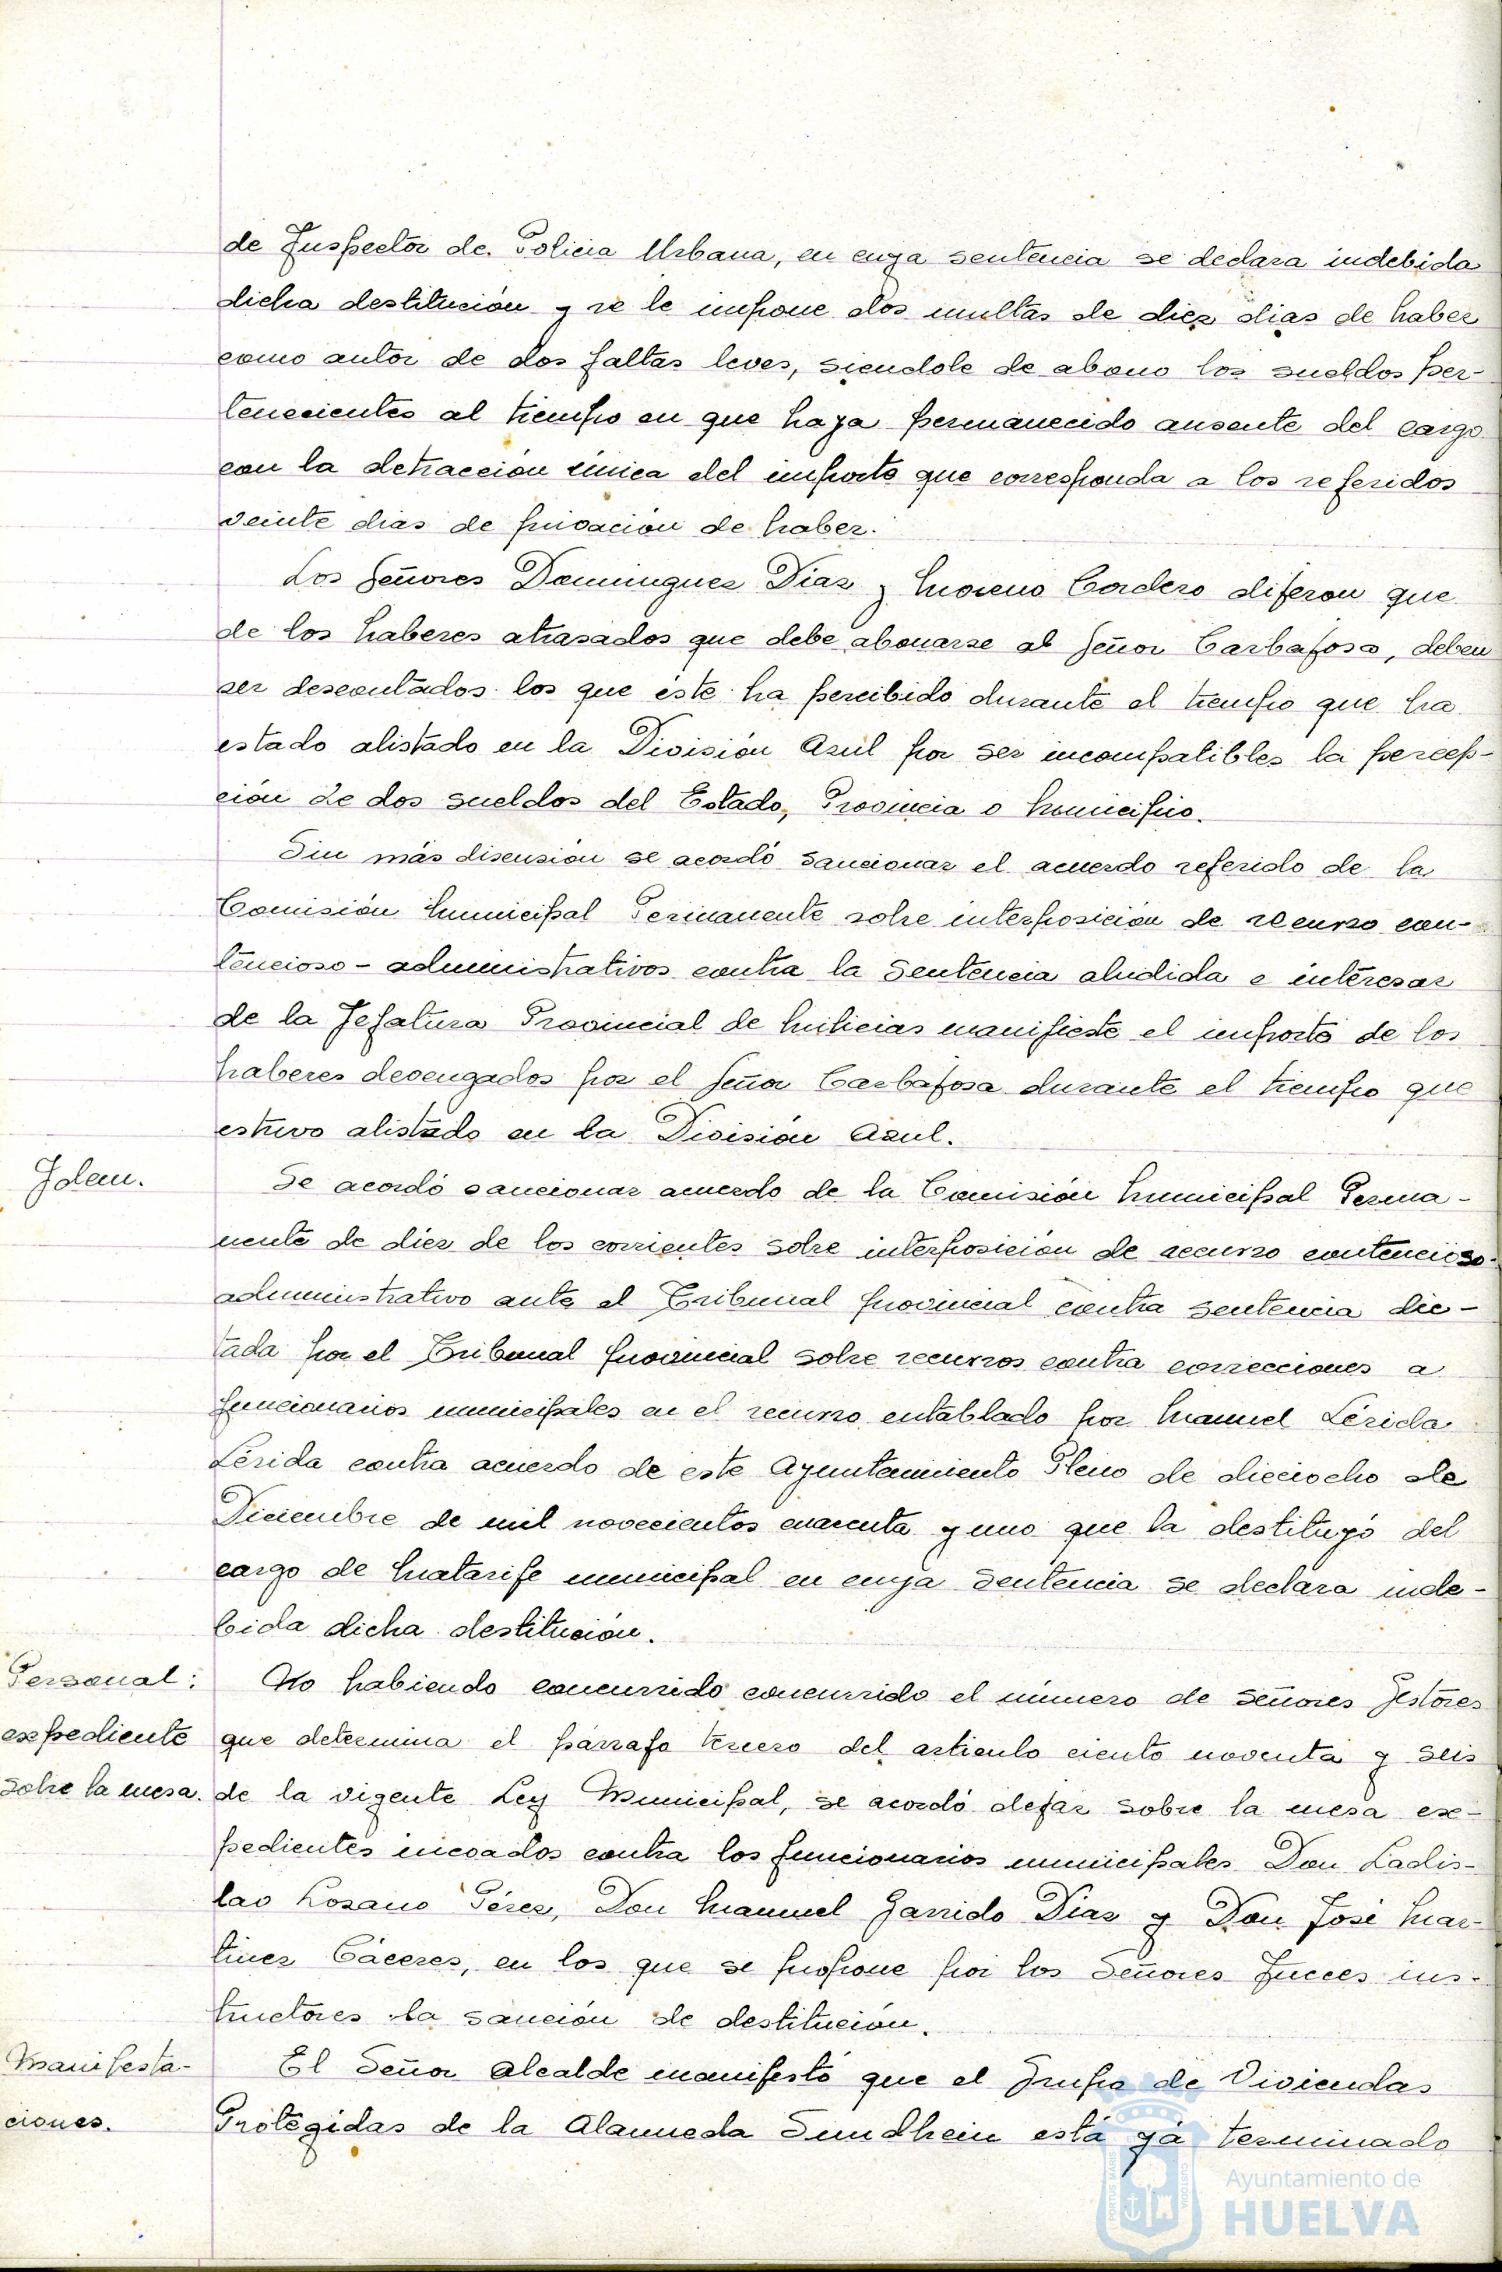 de Inspector de Policia Urbana, en cuya sentencia se declara indebida
dicha destitución y se le impone dos multas de diez dias de haber
como autor de dos faltas leves, siendole de abono los sueldos per-
tenecientes al tiempo en que haya permanecido ausente del cargo
con la detracción única del importe que corresponda a los referidos
veinte dias de privación de haber.
Los Señores Dominguez Diaz y Moreno Cordero dijeron que
de los haberes atrasados que debe abonarse al Señor Carbajosa, deben
ser descontados los que éste ha percibido durante el tiempo que ha
estado alistado en la División Azul por ser incompatibles la percep-
ción de dos sueldos del Estado, Provincia o Municipio.
Sin más discusión se acordó sancionar el acuerdo referido de la
Comisión Municipal Permanente sobre interposición de recurso con-
tencioso-administrativos contra la sentencia aludida e interesar
de la Jefatura Provincial de Milicias manifieste el importe de los
haberes devengados por el Señor Carbajosa durante el tiempo que
estuvo alistado en la División Azul.
Idem.
Se acordó sancionar acuerdo de la Comisión Municipal Perma-
nente de diez de los corrientes sobre interposición de recurso contencioso-
administrativo ante el Tribunal provincial contra sentencia dic-
tada por el Tribunal provincial sobre recursos contra correcciones a
funcionarios municipales en el recurso entablado por Manuel Lérida
Lérida contra acuerdo de este Ayuntamiento Pleno de dieciocho de
Diciembre de mil novecientos cuarenta y uno que la destituyó del
cargo de Matarife municipal en cuya sentencia se declara inde-
bida dicha destitución.
Personal:
expediente
sobre la mesa.
No habiendo concurrido concurrido el número de señores Gestores
que determina el párrafo tercero del articulo ciento noventa y seis
de la vigente Ley Municipal, se acordó dejar sobre la mesa ex-
pedientes incoados contra los funcionarios municipales Don Ladis-
lao Lozano Pérez, Don Manuel Garrido Diaz y Don José Mar-
tinez Cáceres, en los que se propone por los Señores Jueces ins-
tructores la sanción de destitución.
Manifesta-
ciones.
El Señor Alcalde manifestó que el Grupo de Viviendas
Protegidas de la Alameda Sundhein está yá terminado
PORTUS MARIS CUSTODIA
Ayuntamiento de
HUELVA